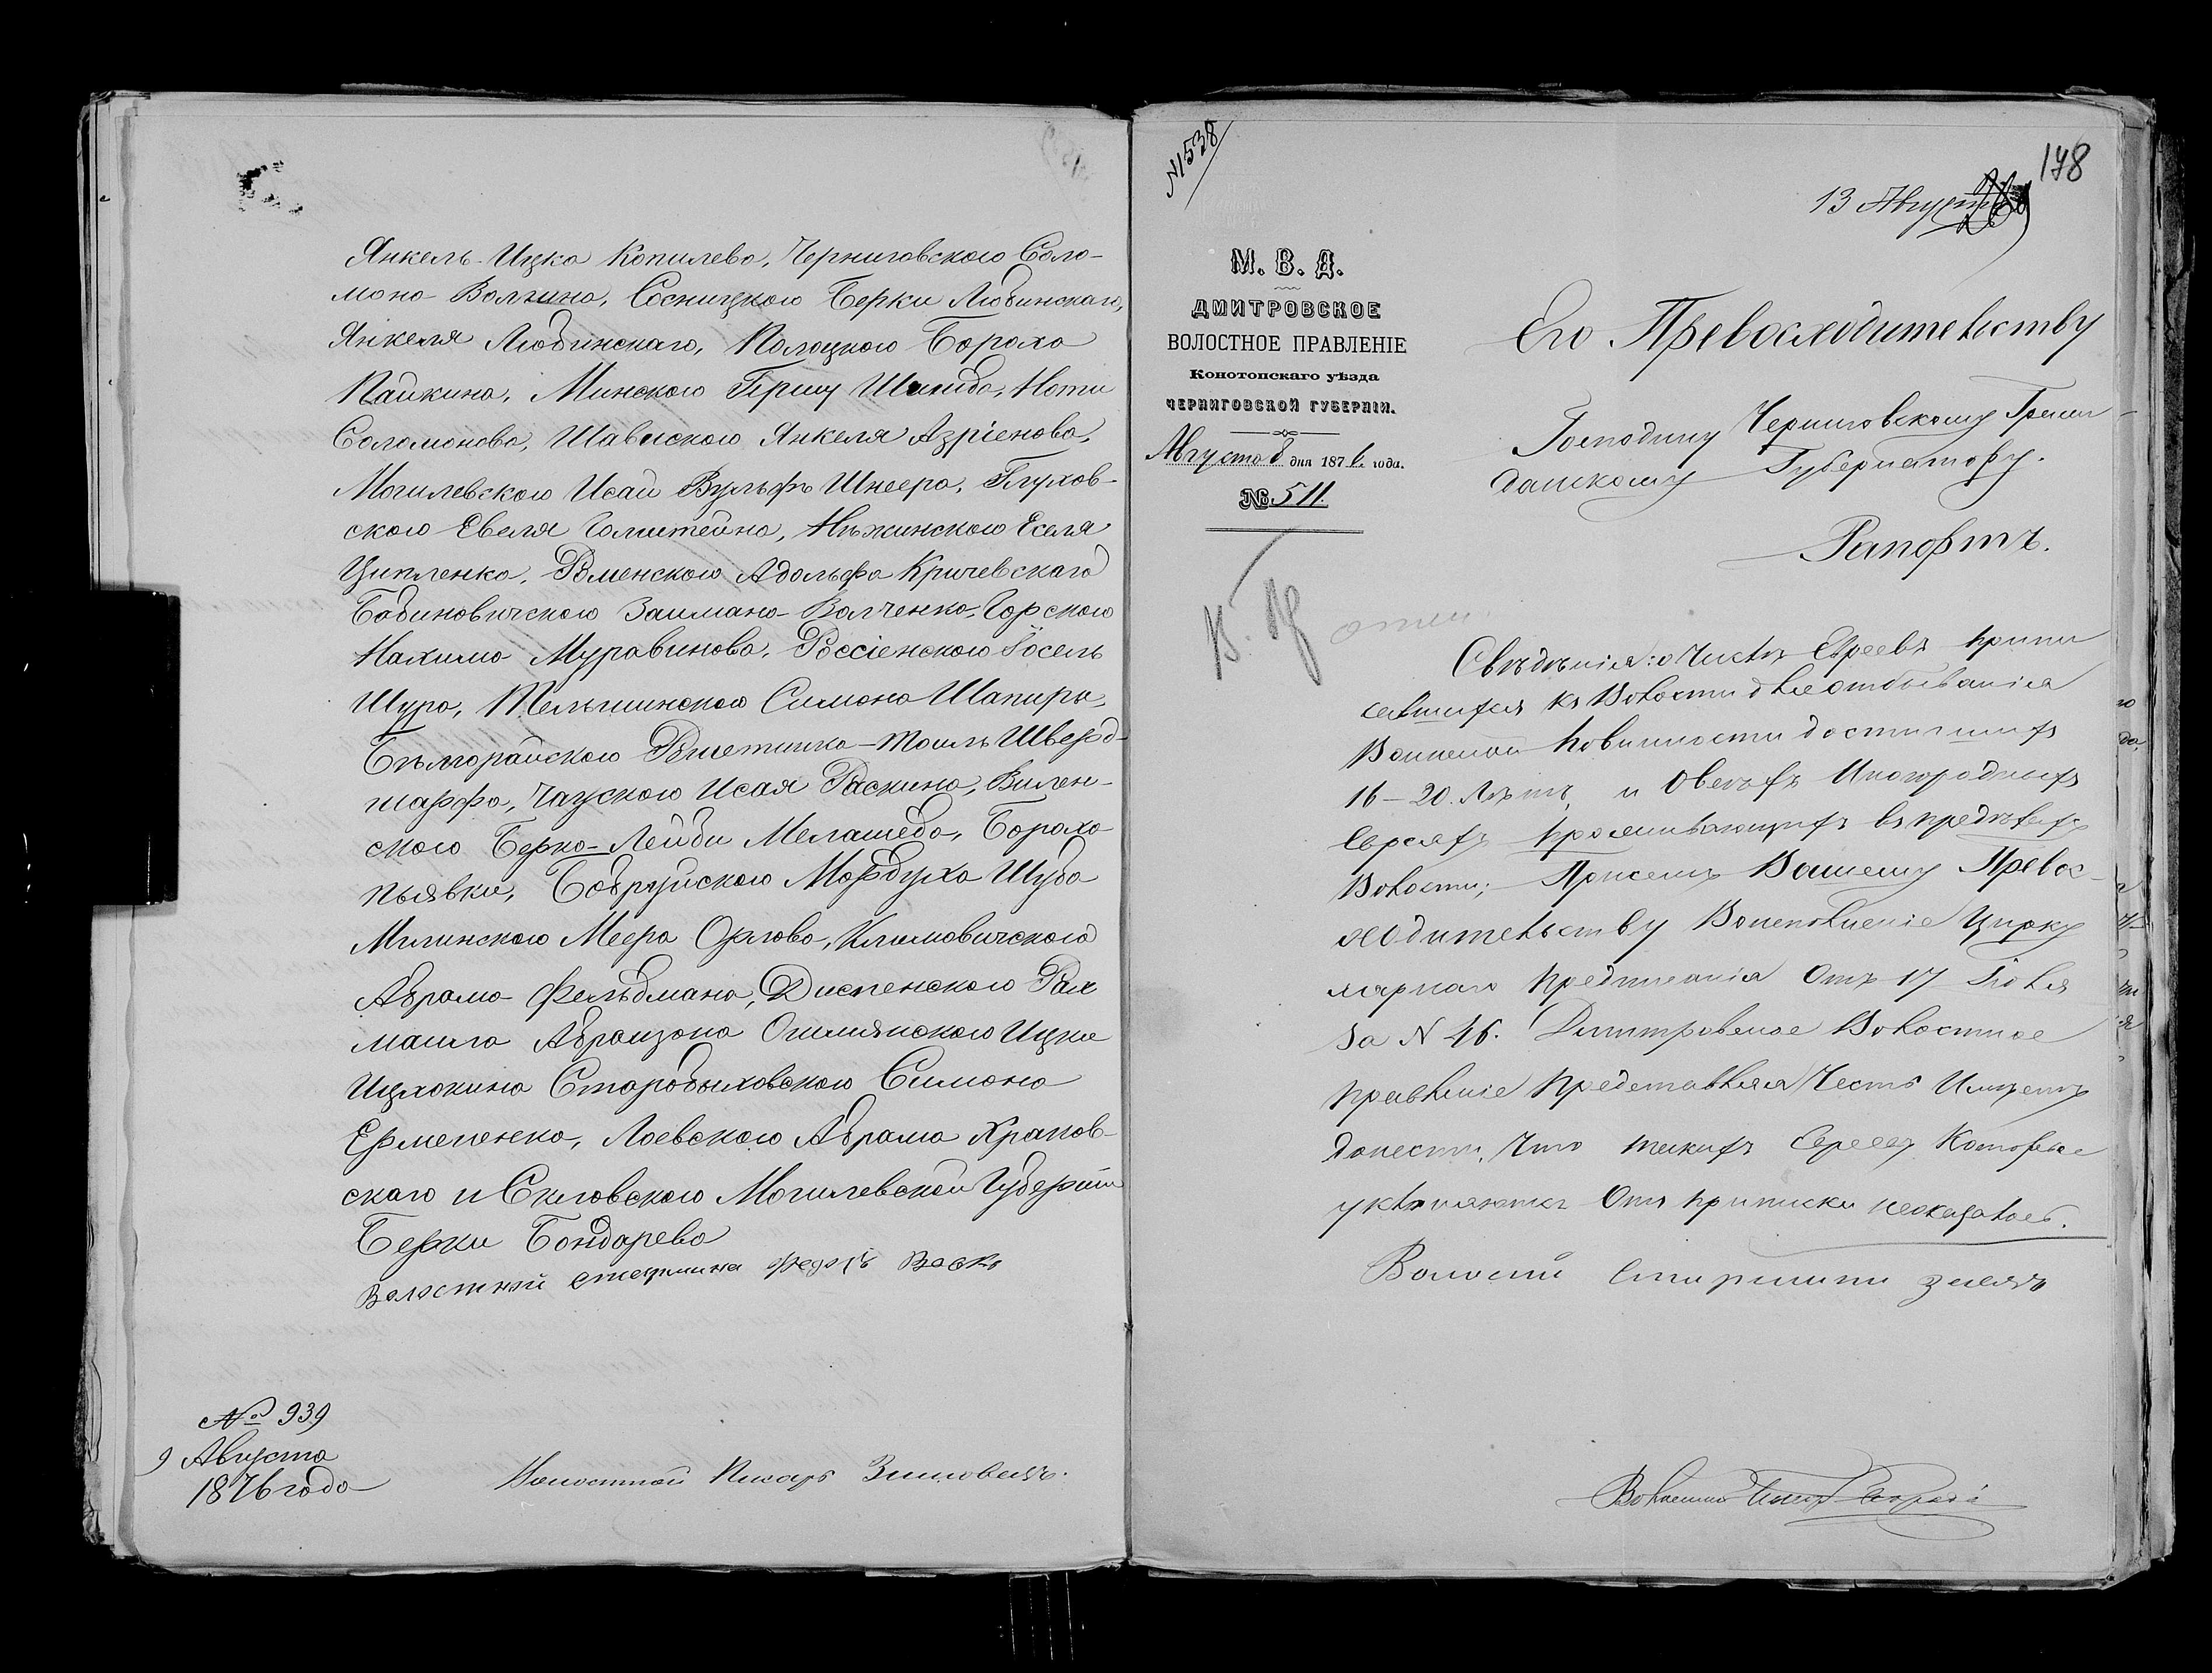 Янкель-Ицка Копилева, Черниговского Соло-
мона Волкина, Сосницкого Берки Любинскаго,
Янкеля Любинскаго, Полоцкого Бороха
Пайкина, Минского Гирши Шмида, Ноти
Соломонова, Шавлского Янкеля Азріенова,
Могилевского Исаи Вульфъ Шнеера, Глухов-
ского Евеля Голштейна, Нѣжинского Еселя
Ципленка, Роменского Адольфа Кричевскаго
Бабиновичского Залмана Волченка, Горского
Нахима Муравинова, Россіенского Іосель
Шура, Тельшинского Симона Шапиры,
Бѣлгорайского Решетника-Тоиль Шверд-
шарфа, Чауского Исая Раскина, Вилен-
ского Берко-Лейби Меламеда, Бороха
Пьявки, Бобруйского Мордуха Шуба
Мглинского Меера Орлова, Климовичского
Абрама Фельдмана, Диспенского Рах
маила Абрамзона Ошмянского Ицки
Ицхокина Старобыховского Симона
Ермепенко, Лоевского Абрама Храпов-
скаго и Скловского Могилевской Губерніи
Берки Бондарева
Волостной старшина Федоръ
№ 939
9 Августа
1876 года
Волостной Писарь
N 1538
178
13 Августа
М. В. Д.
ДМИТРОВСКОЕ
ВОЛОСТНОЕ ПРАВЛЕНІЕ
Конотопскаго уѣзда
ЧЕРНИГОВСКОЙ ГУБЕРНІИ.
Августа 8 дня 1876 года.
№ 511.
Его Превосходительству
Господину Черниговскому Граж-
данскому Губернатору.
Рапортъ.
Свѣдѣнія: о числѣ Евреевъ припи
савшихся къ Волости для отбыванія
Воинской повинности достигшихъ
16–20. Лѣтъ, и о всѣхъ Иногородныхъ
Евреяхъ проживающихъ въ предѣлахъ
Волости; При семъ Вашему Превос-
ходительству Воисполненіе Цирку
лярнаго предписанія Отъ 17 Іюля
За N 46. Дмитровское Волостное
правленіе представляя Честь Имѣетъ
донести, Что такихъ Евреевъ Которые
уклоняются Отъ приписки неоказалось.
Волосной Старшина
Волостной Писарь